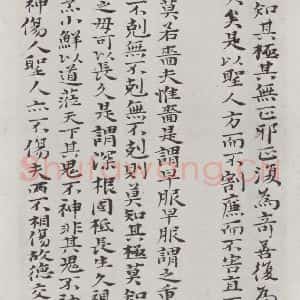 知其極其無正邪正復為奇善復為
久矣是以聖人方而不割廉而不害直
莫若嗇夫惟嗇是謂早服早服謂之重
無不剋無不剋則莫知其極莫知
之母可以長久是謂深根固柢長生久視
烹小鮮以道莅天下其鬼不神非其鬼不
神傷人聖人亦不傷夫兩不相傷故德交
Shufawang.Cn